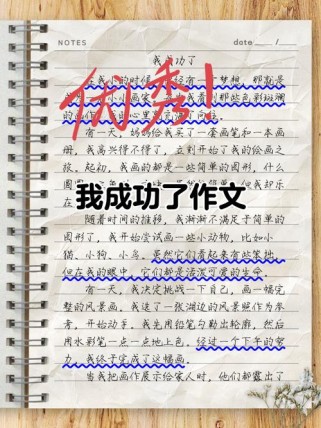 NOTES
date /
我成功了
在我小的时候
有一个梦想，那就是
优秀！
有一天，妈妈给我买了一套画笔和一本画
册，我高兴得不得了，立刻开始了我的绘画之
旅。起初，我画的都是一些简单的图形，什么
我成功了作文
随着时间的推移，我渐渐不满足于简单的
图形了，我开始尝试画一些小动物，比如小
猫、小狗、小鸟。虽然它们看起来有些笨拙，
但在我的眼中，它们都是活泼可爱的生命。
有一天，我决定挑战一下自己，画一幅完
整的风景画。我选了一张湖边的风景照作为参
考，开始动手。我先用铅笔勾勒出轮廓，然后
用水彩笔一点一点地上色。经过一个下午的努
力，我终于完成了这幅画。
当我把画作展示给家人时，他们都露出了